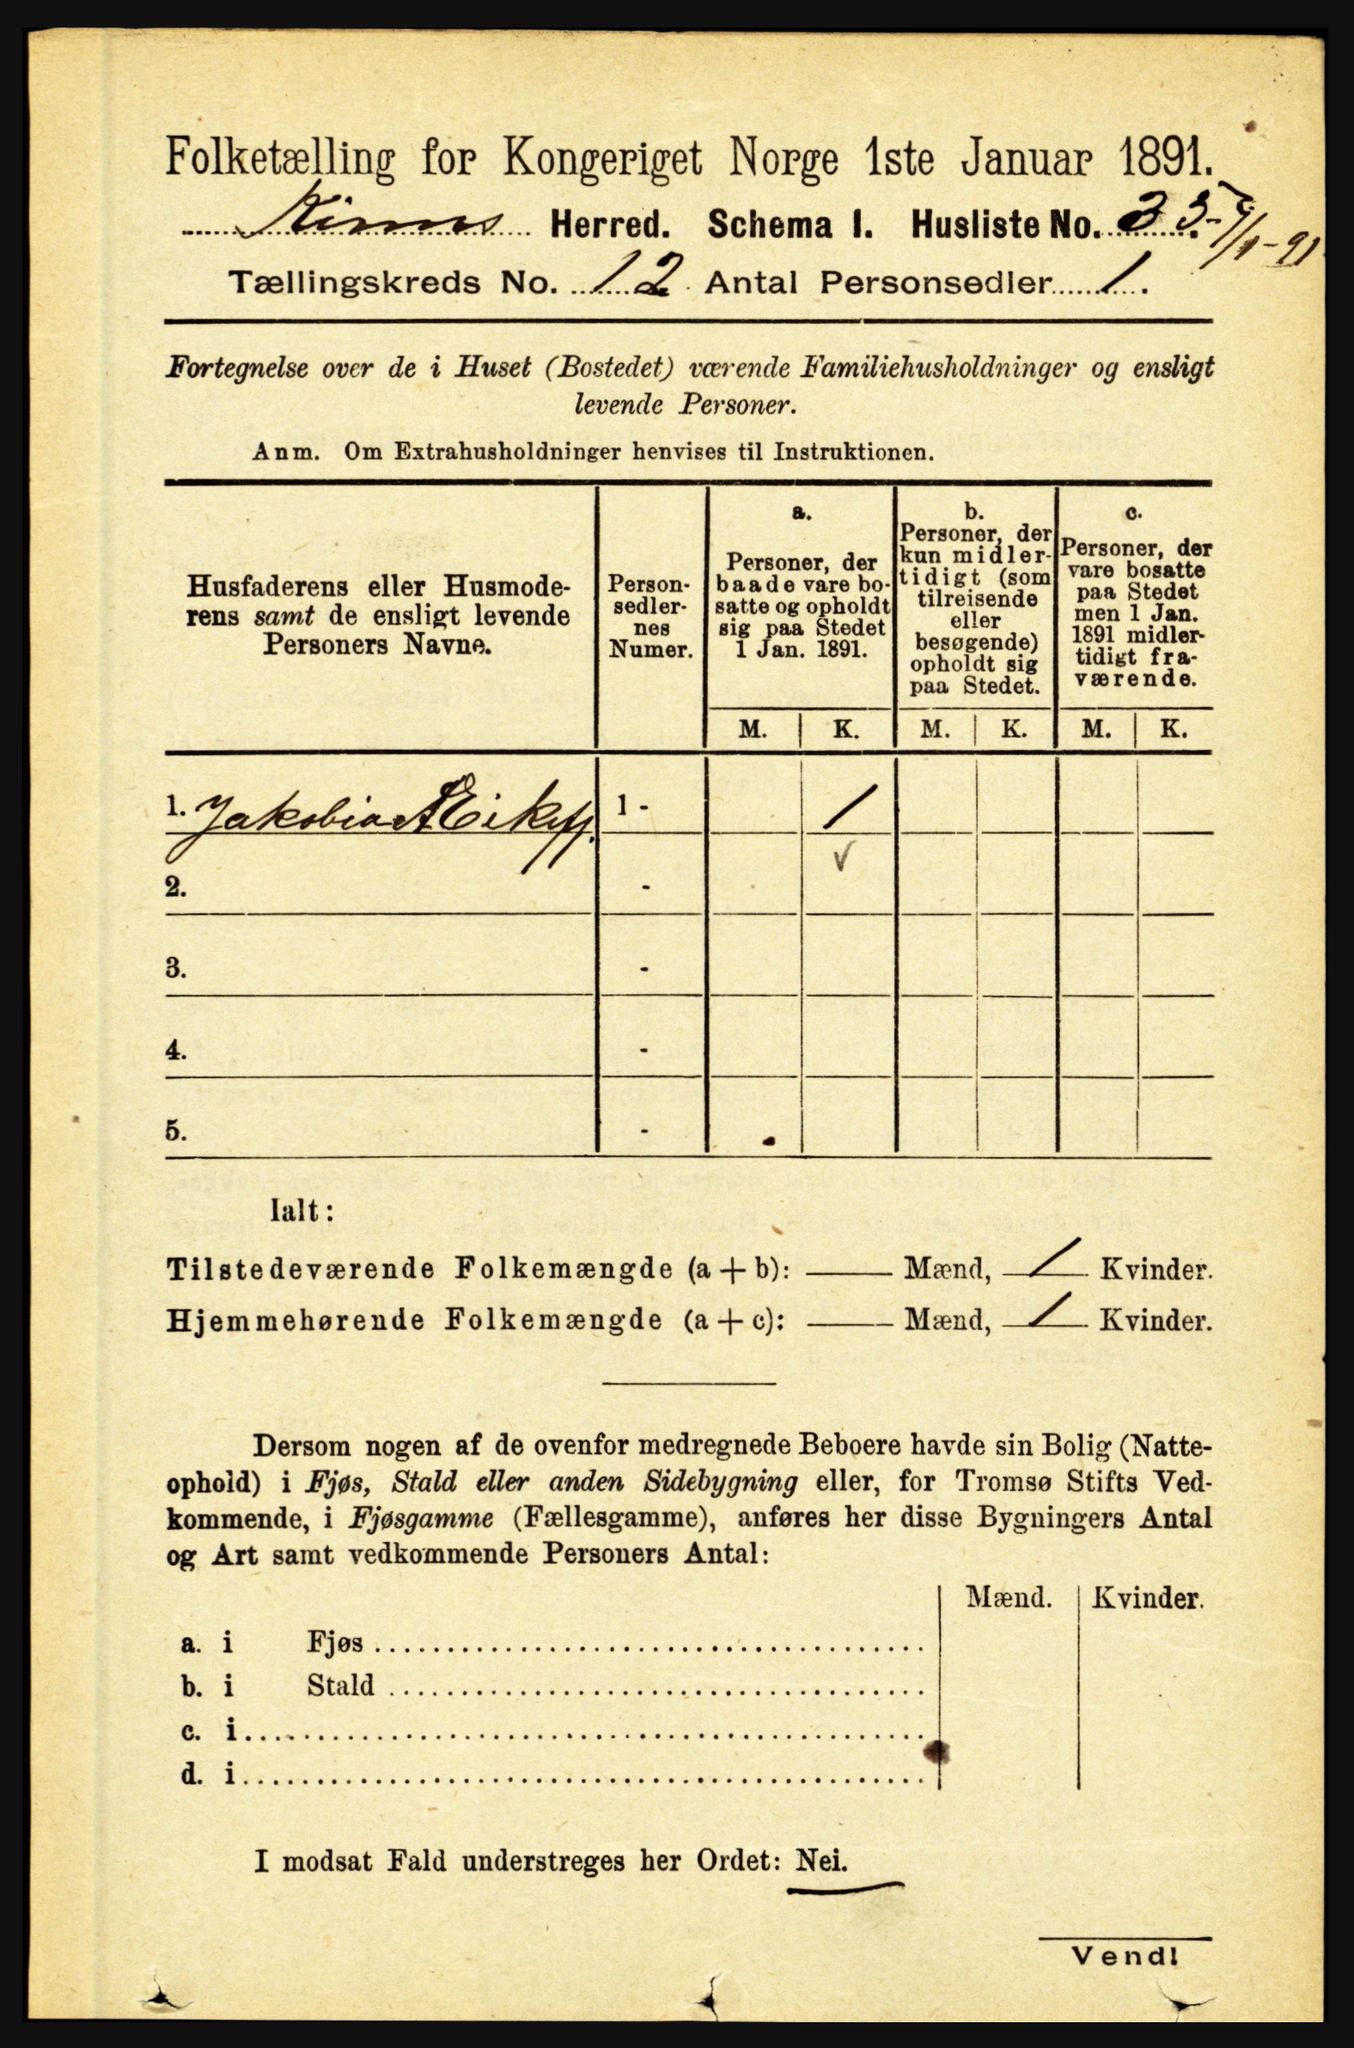 Folketælling for Kongeriget Norge 1ste Januar 1891.
Kinns Herred. Schema I. Husliste No. 33.
Tællingskreds No. 12 Antal Personsedler 1.
Fortegnelse over de i Huset (Bostedet) værende Familiehusholdninger og ensligt
levende Personer.
Anm. Om Extrahusholdninger henvises til Instruktionen.
Husfaderens eller Husmode-
rens samt de ensligt levende
Personers Navne.
Person-
sedler-
nes
Numer.
a.
Personer, der
baade vare bo-
satte og opholdt
sig paa Stedet
1 Jan. 1891.
b.
Personer, der
kun midler-
tidigt (som
tilreisende
eller
besøgende)
opholdt sig
paa Stedet.
c.
Personer, der
vare bosatte
paa Stedet
men 1 Jan.
1891 midler-
tidigt fra-
værende.
M. K. M. K. M. K.
1. Jakobia A 1 - 1
2. -
3. -
4. -
5. -
Ialt:
Tilstedeværende Folkemængde (a + b): Mænd, 1 Kvinder.
Hjemmehørende Folkemængde (a + c): Mænd, 1 Kvinder.
Dersom nogen af de ovenfor medregnede Beboere havde sin Bolig (Natte-
ophold) i Fjøs, Stald eller anden Sidebygning eller, for Tromsø Stifts Ved-
kommende, i Fjøsgamme (Fællesgamme), anføres her disse Bygningers Antal
og Art samt vedkommende Personers Antal:
Mænd. Kvinder.
a. i Fjøs
b. i Stald
c. i
d. i
I modsat Fald understreges her Ordet: Nei.
Vend!